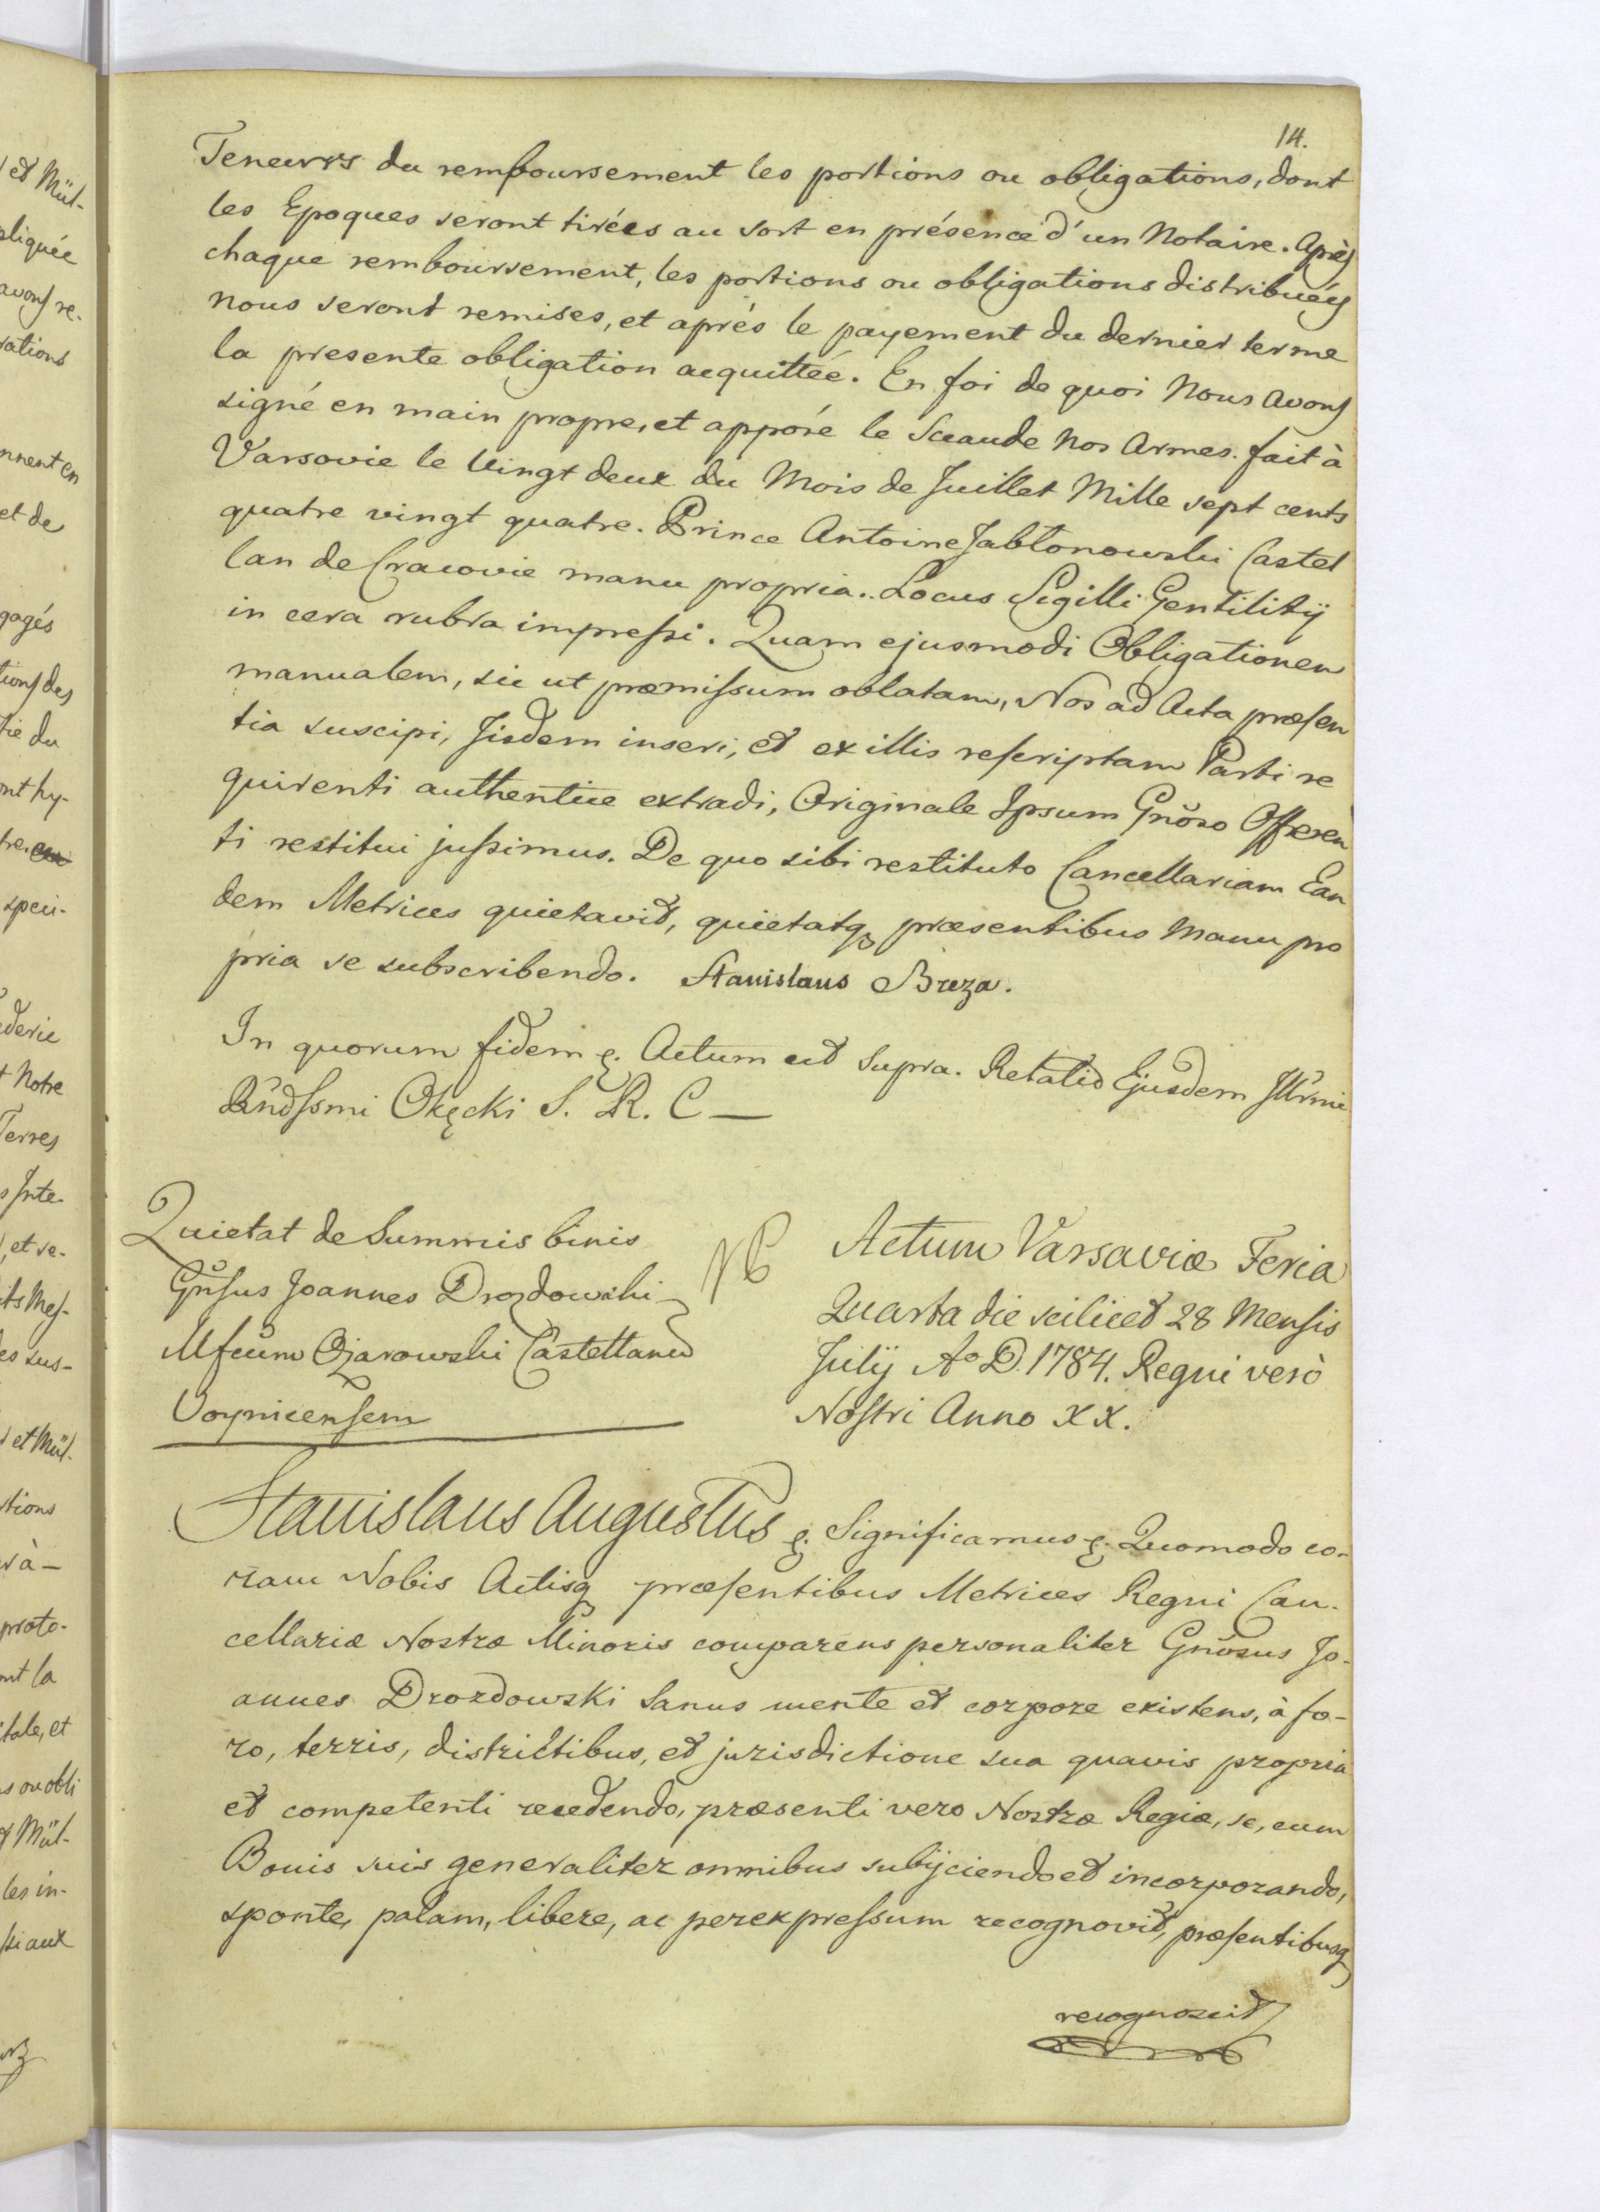 14.
Teneurs du remboursement les portions ou obligations, dont
les Epoques seront tirées au sort en présence d'un Notaire. Après
chaque remboursement, les portions ou obligations distribuées
nous seront remises, et aprés le payement du dernier terme
la presente obligation acquittée. En foi de quoi Nous avons
signé en main propre, et apposé le Sceau de Nos Armes. fait à
Varsovie le Vingt deux du Mois de Juillet Mille sept cents
quatre vingt quatre. Prince Antoine Jabłonowski Castel
lan de Cracovie manu propria. Locus Sigilli Gentilitij
in cera rubra impreſsi. Quam ejusmodi Obligationem
manualem, sic ut præmiſsum oblatam, Nos ad Acta præſen
tia suscipi, Jisdem inseri, et ex illis reſcriptam Parti re
quirenti authentice extradi, Originale Ipsum Gnõso Offeren
ti restitui juſsimus. De quo sibi restituto Cancellariam Ean
dem Metrices quietavit, quietatq præsentibus Manu pro
pria se subscribendo. Stanislaus Breza.
In quorum fidem &. Actum ut supra. Relatio Ejusdem Jllrmi
Rndſsmi Okęcki S. R. C —
Quietat de Summis binis
Gnſus Joannes Drozdowski
Mfcum Ożarowski Castellanum
Voynicenſem
NB
Actum Varsaviæ Feria
Quarta die scilicet 28 Menſis
Julij Aº D. 1784. Regni verò
Noſtri Anno XX.
Stanislaus Augustus &. Significamus &. Quomodo co-
ram Nobis Actisq præſentibus Metrices Regni Can-
cellariæ Nostræ Minoris comparens personaliter Gnõsus Jo-
annes Drozdowski Sanus mente et corpore existens, à fo-
ro, terris, districtibus, et jurisdictione sua quavis propria
et competenti recedendo, præsenti vero Nostræ Regiæ, se, cum
Bonis suis generaliter omnibus subijciendo et incorporando,
sponte, palam, libere, ac perexpreſsum recognovit, præſentibusq
recognoscit